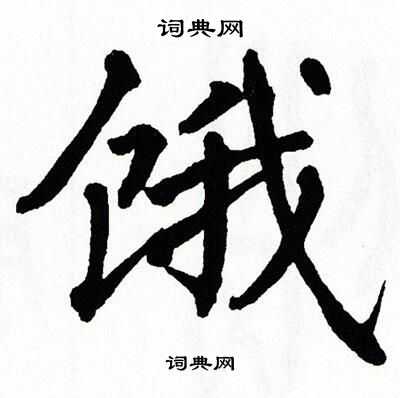 词典网
饿
词典网